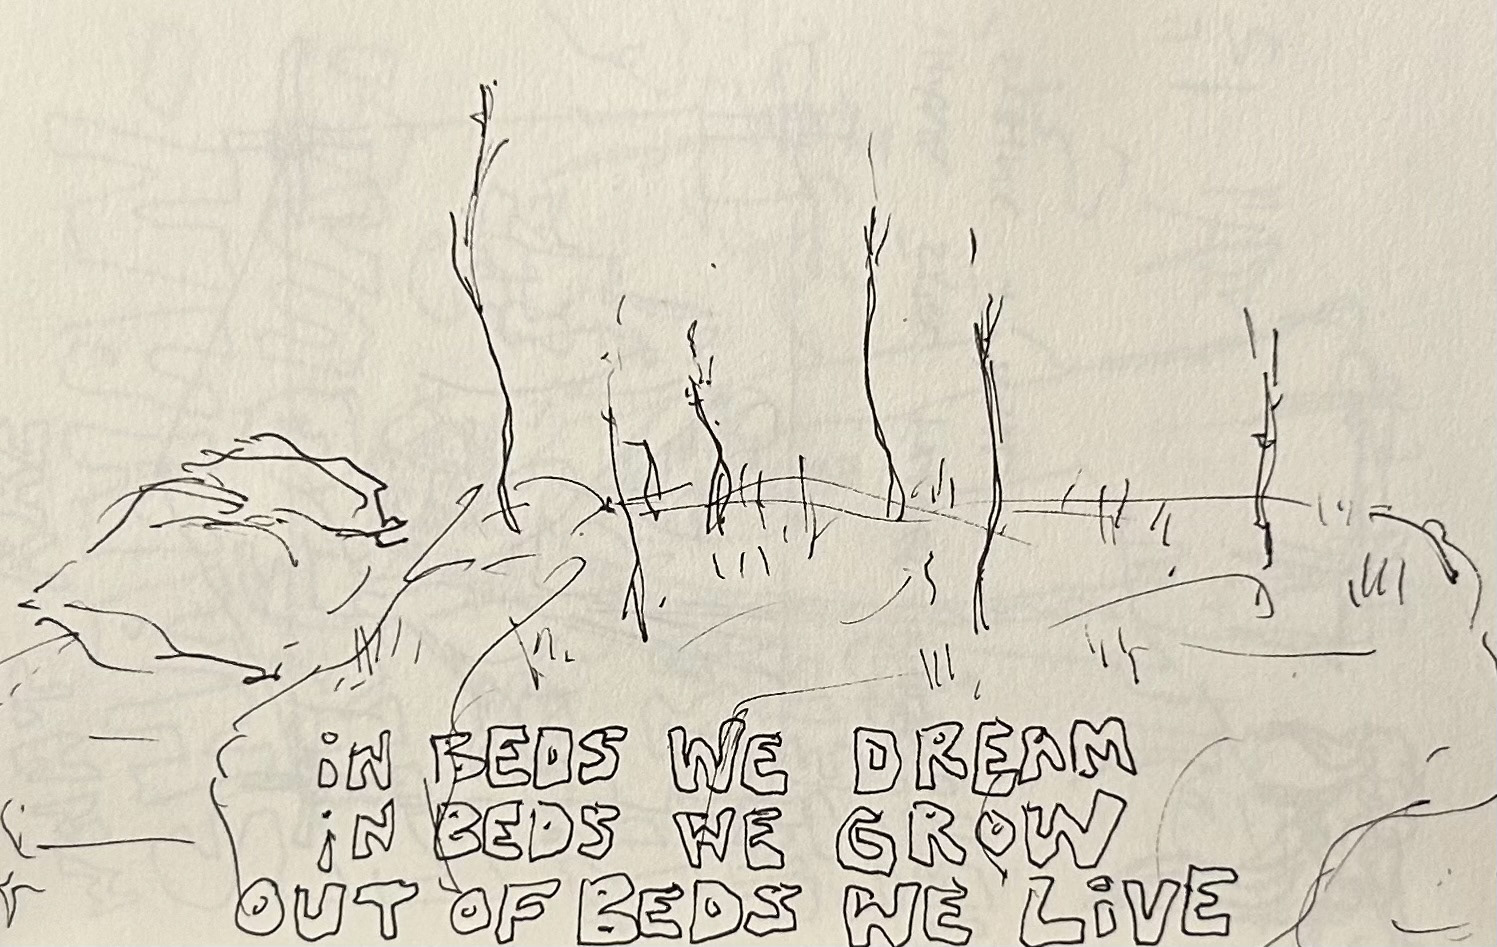 iN BEDS WE DREAM
iN BEDS WE GROW
OUT OF BEDS WE LiVE